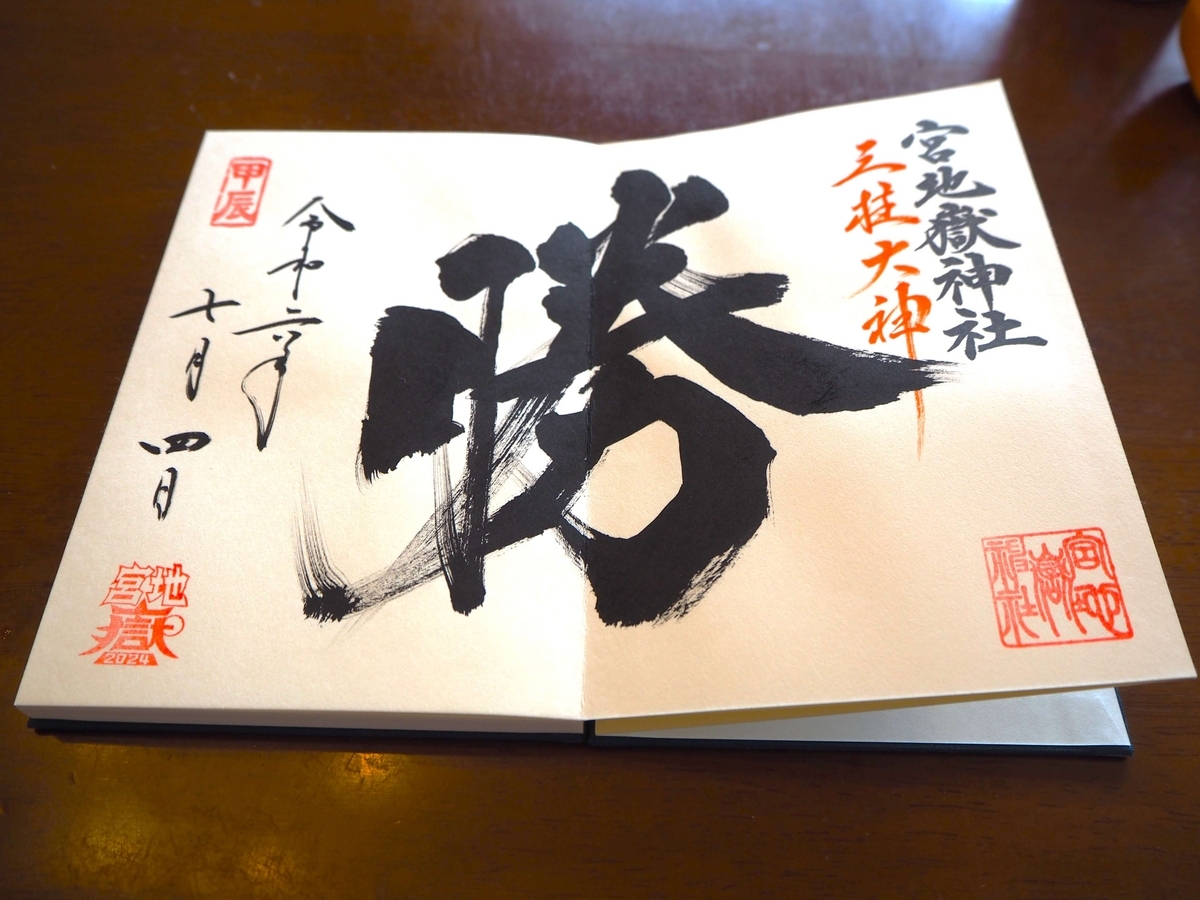 宮地嶽神社
三柱大神
宮地
嶽
神社
勝
令和六年
七月四日
甲辰
宮地
嶽
2024